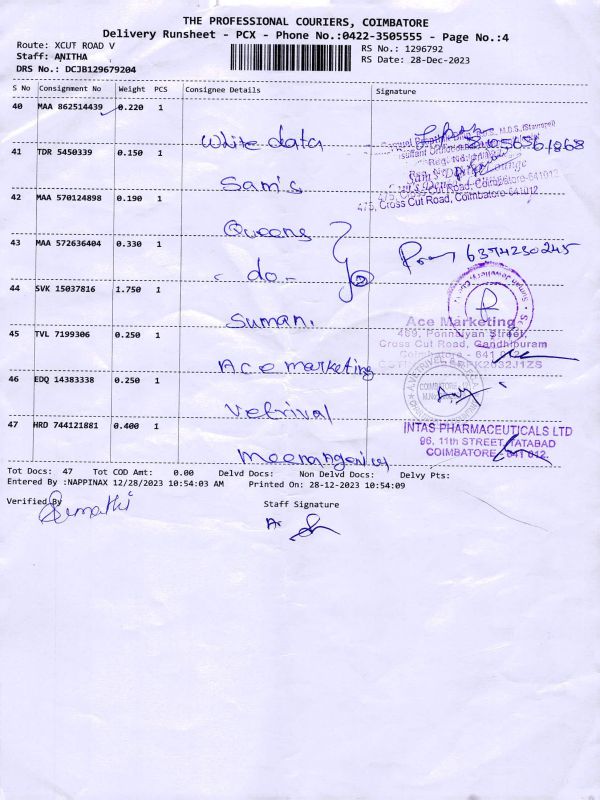 THE PROFESSIONAL COURIERS, COIMBATORE
Delivery Runsheet - PCX - Phone No.:0422-3505555 - Page No.:4
Route: XCUT ROAD V
RS No.: 1296792
Staff: ANITHA
RS Date: 28-Dec-2023
DRS No.: DCJB129679204
S No Consignment No Weight PCS Consignee Details Signature
40 MAA 862514439 0.220 1
White data
41 TDR 5450339 0.150 1
Sam's
475, Cross Cut Road, Coimbatore-641012
42 MAA 570124898 0.190 1
Queens
43 MAA 572636404 0.330 1
- do -
6374230245
44 SVK 15037816 1.750 1
Suman.
Ace Marketing
469, Ponnaiyan Street,
Cross Cut Road, Gandhipuram
45 TVL 7199306 0.250 1
Ace marketing
46 EDQ 14383338 0.250 1
Vetrival
47 HRD 744121881 0.400 1
INTAS PHARMACEUTICALS LTD
96, 11th STREET, TATABAD
COIMBATORE - 641 012.
Tot Docs: 47 Tot COD Amt: 0.00 Delvd Docs: Non Delvd Docs: Delvy Pts:
Entered By :NAPPINAX 12/28/2023 10:54:03 AM Printed On: 28-12-2023 10:54:09
Verified By
Staff Signature